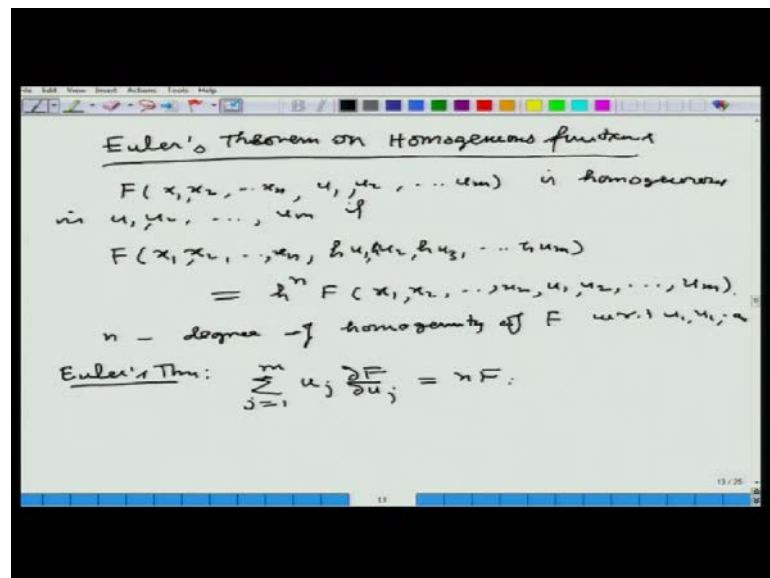 Edit View Insert Actions Tools Help
Euler's Theorem on Homogeneous functions
F( x₁, x₂, ... xₙ, u₁, u₂, ... uₘ) is homogeneous
in u₁, u₂, ..., uₘ if
F(x₁, x₂, .., xₙ, hu₁, hu₂, hu₃, ... huₘ)
= hⁿ F ( x₁, x₂, ..., xₙ, u₁, u₂, ..., uₘ).
n – degree of homogenity of F w.r.t u₁, u₂, ..
Euler's Thm: ∑ⱼ₌₁ᵐ uⱼ ∂F/∂uⱼ = nF.
13 / 25
13